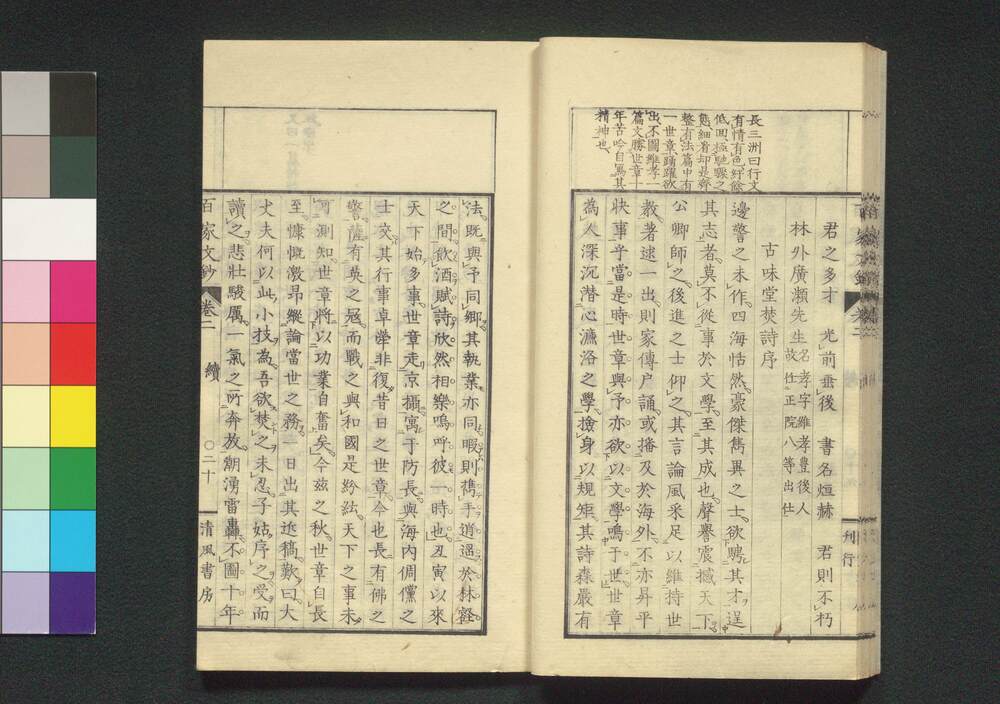 長三洲曰行文
有情有色紆餘
低回極馳驟之
態細看却是齊
整有法篇中有
一世章踊躍欲
出不圖維孝一
篇文勝世章十
年苦吟自寫其
精神也
君之多才 光前垂後 書名烜赫 君則不朽
林外廣瀨先生 名孝字維孝豐後人
故任正院八等出仕
古味堂焚詩序
邊警之未作四海恬然豪傑雋異之士欲騁其才逞
其志者莫不從事於文學至其成也聲譽震撼天下
公卿師之後進之士仰之其言論風采足以維持世
教著述一出則家傳戶誦或播及於海外不亦昇平
快事乎當是時世章與予亦欲以文學鳴于世世章
為人深沉潛心濂洛之學撿身以規矩其詩森嚴有
法既與予同鄉其執業亦同暇則携手逍遥於林壑
之間飲酒賦詩欣然相樂嗚呼彼一時也丑寅以來
天下始多事世章走京攝寓于防長與海内倜儻之
士交其行事卓犖非復昔日之世章今也長有佛之
警薩有英之冦而戰之與和國是紛紜天下之事未
可測知世章將以功業自奮矣今茲之秋世章自長
至慷慨激昂縱論當世之務一日出其迯稿歎曰大
丈夫何以此小技為吾欲焚之未忍子姑序之受而
讀之悲壯駿厲一氣之所奔放潮湧雷轟不圖十年
百家文鈔 卷二 續 〇二十 清風書房